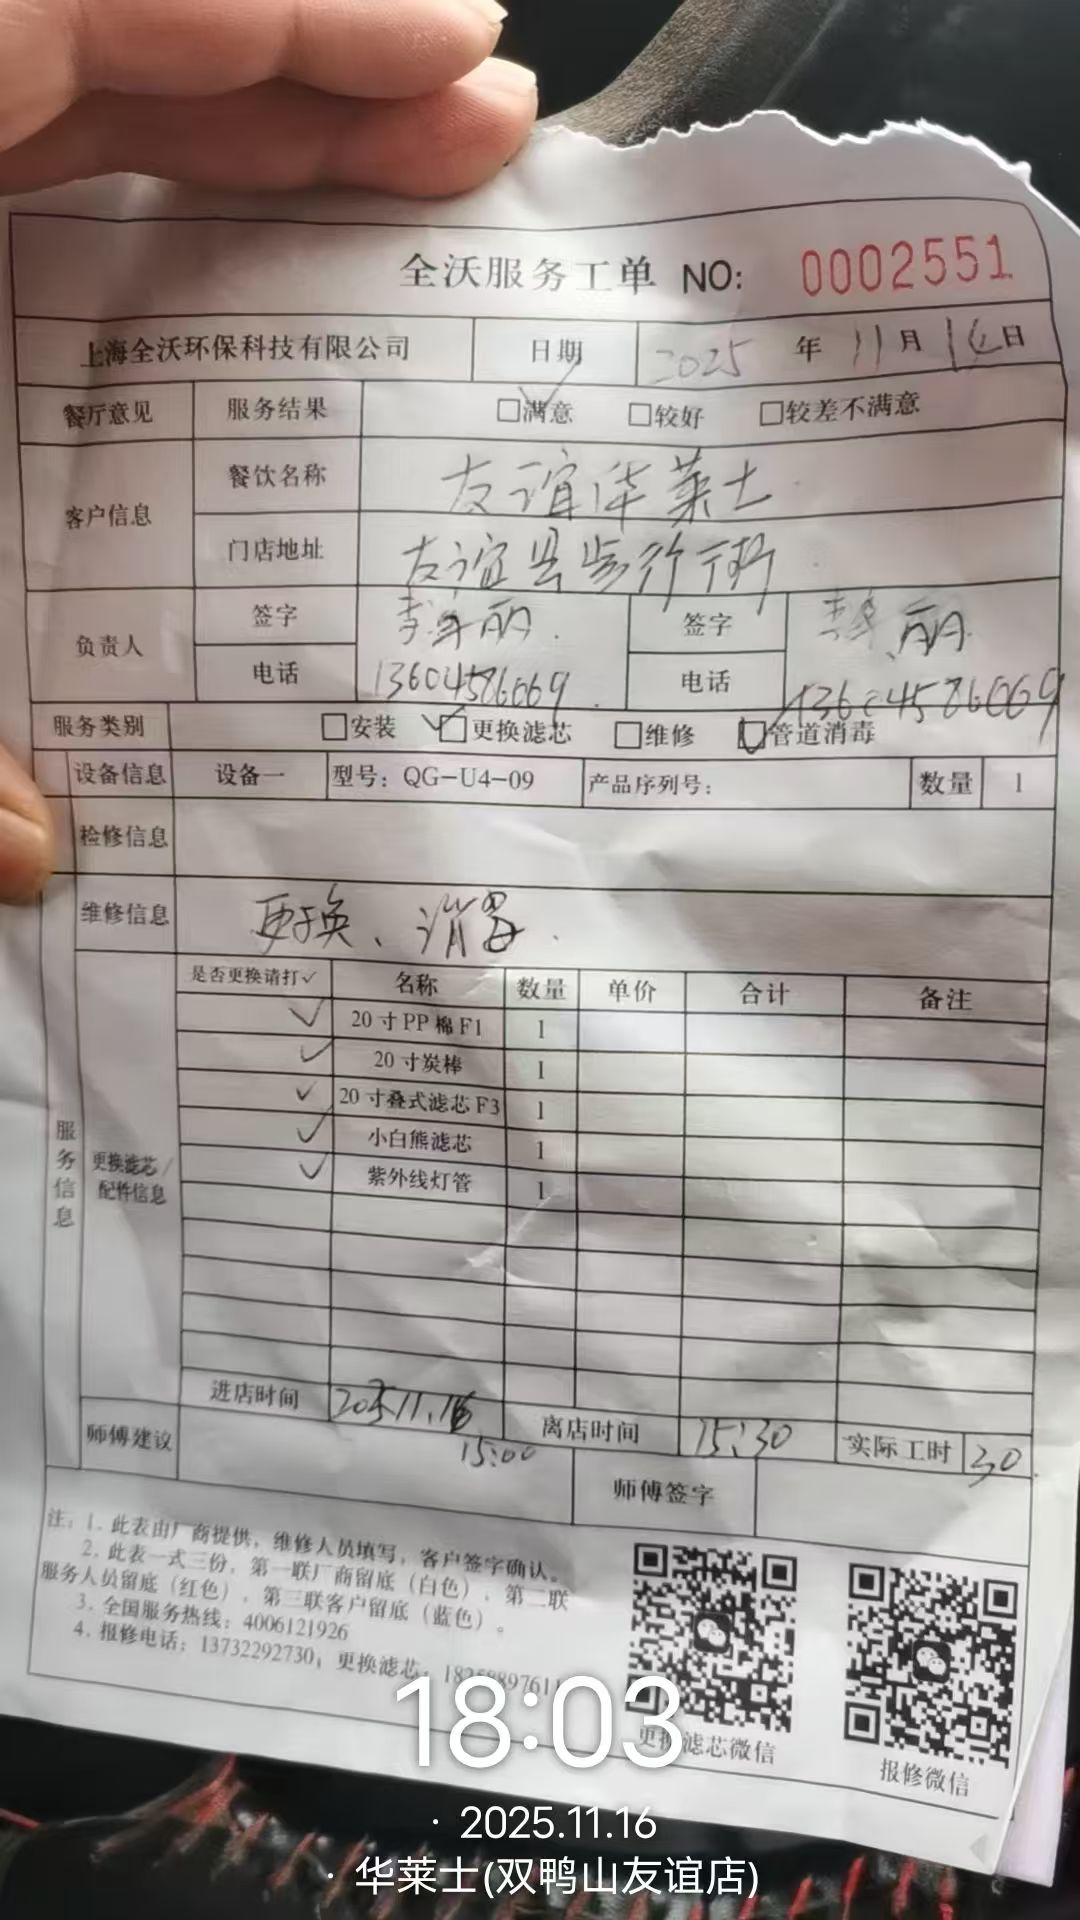 全沃服务工单 NO: 0002551
上海全沃环保科技有限公司 日期 2025 年 11 月 16 日
餐厅意见 服务结果 □满意 □较好 □较差不满意
客户信息 餐饮名称 友谊华莱士
门店地址 友谊县步行街
负责人 签字 丽 签字 丽
电话 13604586069 电话 13604586069
服务类别 □安装 □更换滤芯 □维修 □管道消毒
设备信息 设备一 型号: QG-U4-09 产品序列号: 数量 1
检修信息
维修信息 更换、消毒.
服务信息
更换滤芯/配件信息
是否更换请打✓ 名称 数量 单价 合计 备注
✓ 20寸PP棉F1 1
✓ 20寸炭棒 1
✓ 20寸叠式滤芯F3 1
✓ 小白熊滤芯 1
✓ 紫外线灯管 1
进店时间 2025.11.16 15:00 离店时间 15:30 实际工时 30
师傅建议 师傅签字
注: 1. 此表由厂商提供, 维修人员填写, 客户签字确认。
2. 此表一式三份, 第一联厂商留底(白色), 第二联
服务人员留底(红色), 第三联客户留底(蓝色)。
3. 全国服务热线: 4006121926
4. 报修电话: 13732292730; 更换滤芯:
更换滤芯微信 报修微信
18:03
· 2025.11.16
· 华莱士(双鸭山友谊店)